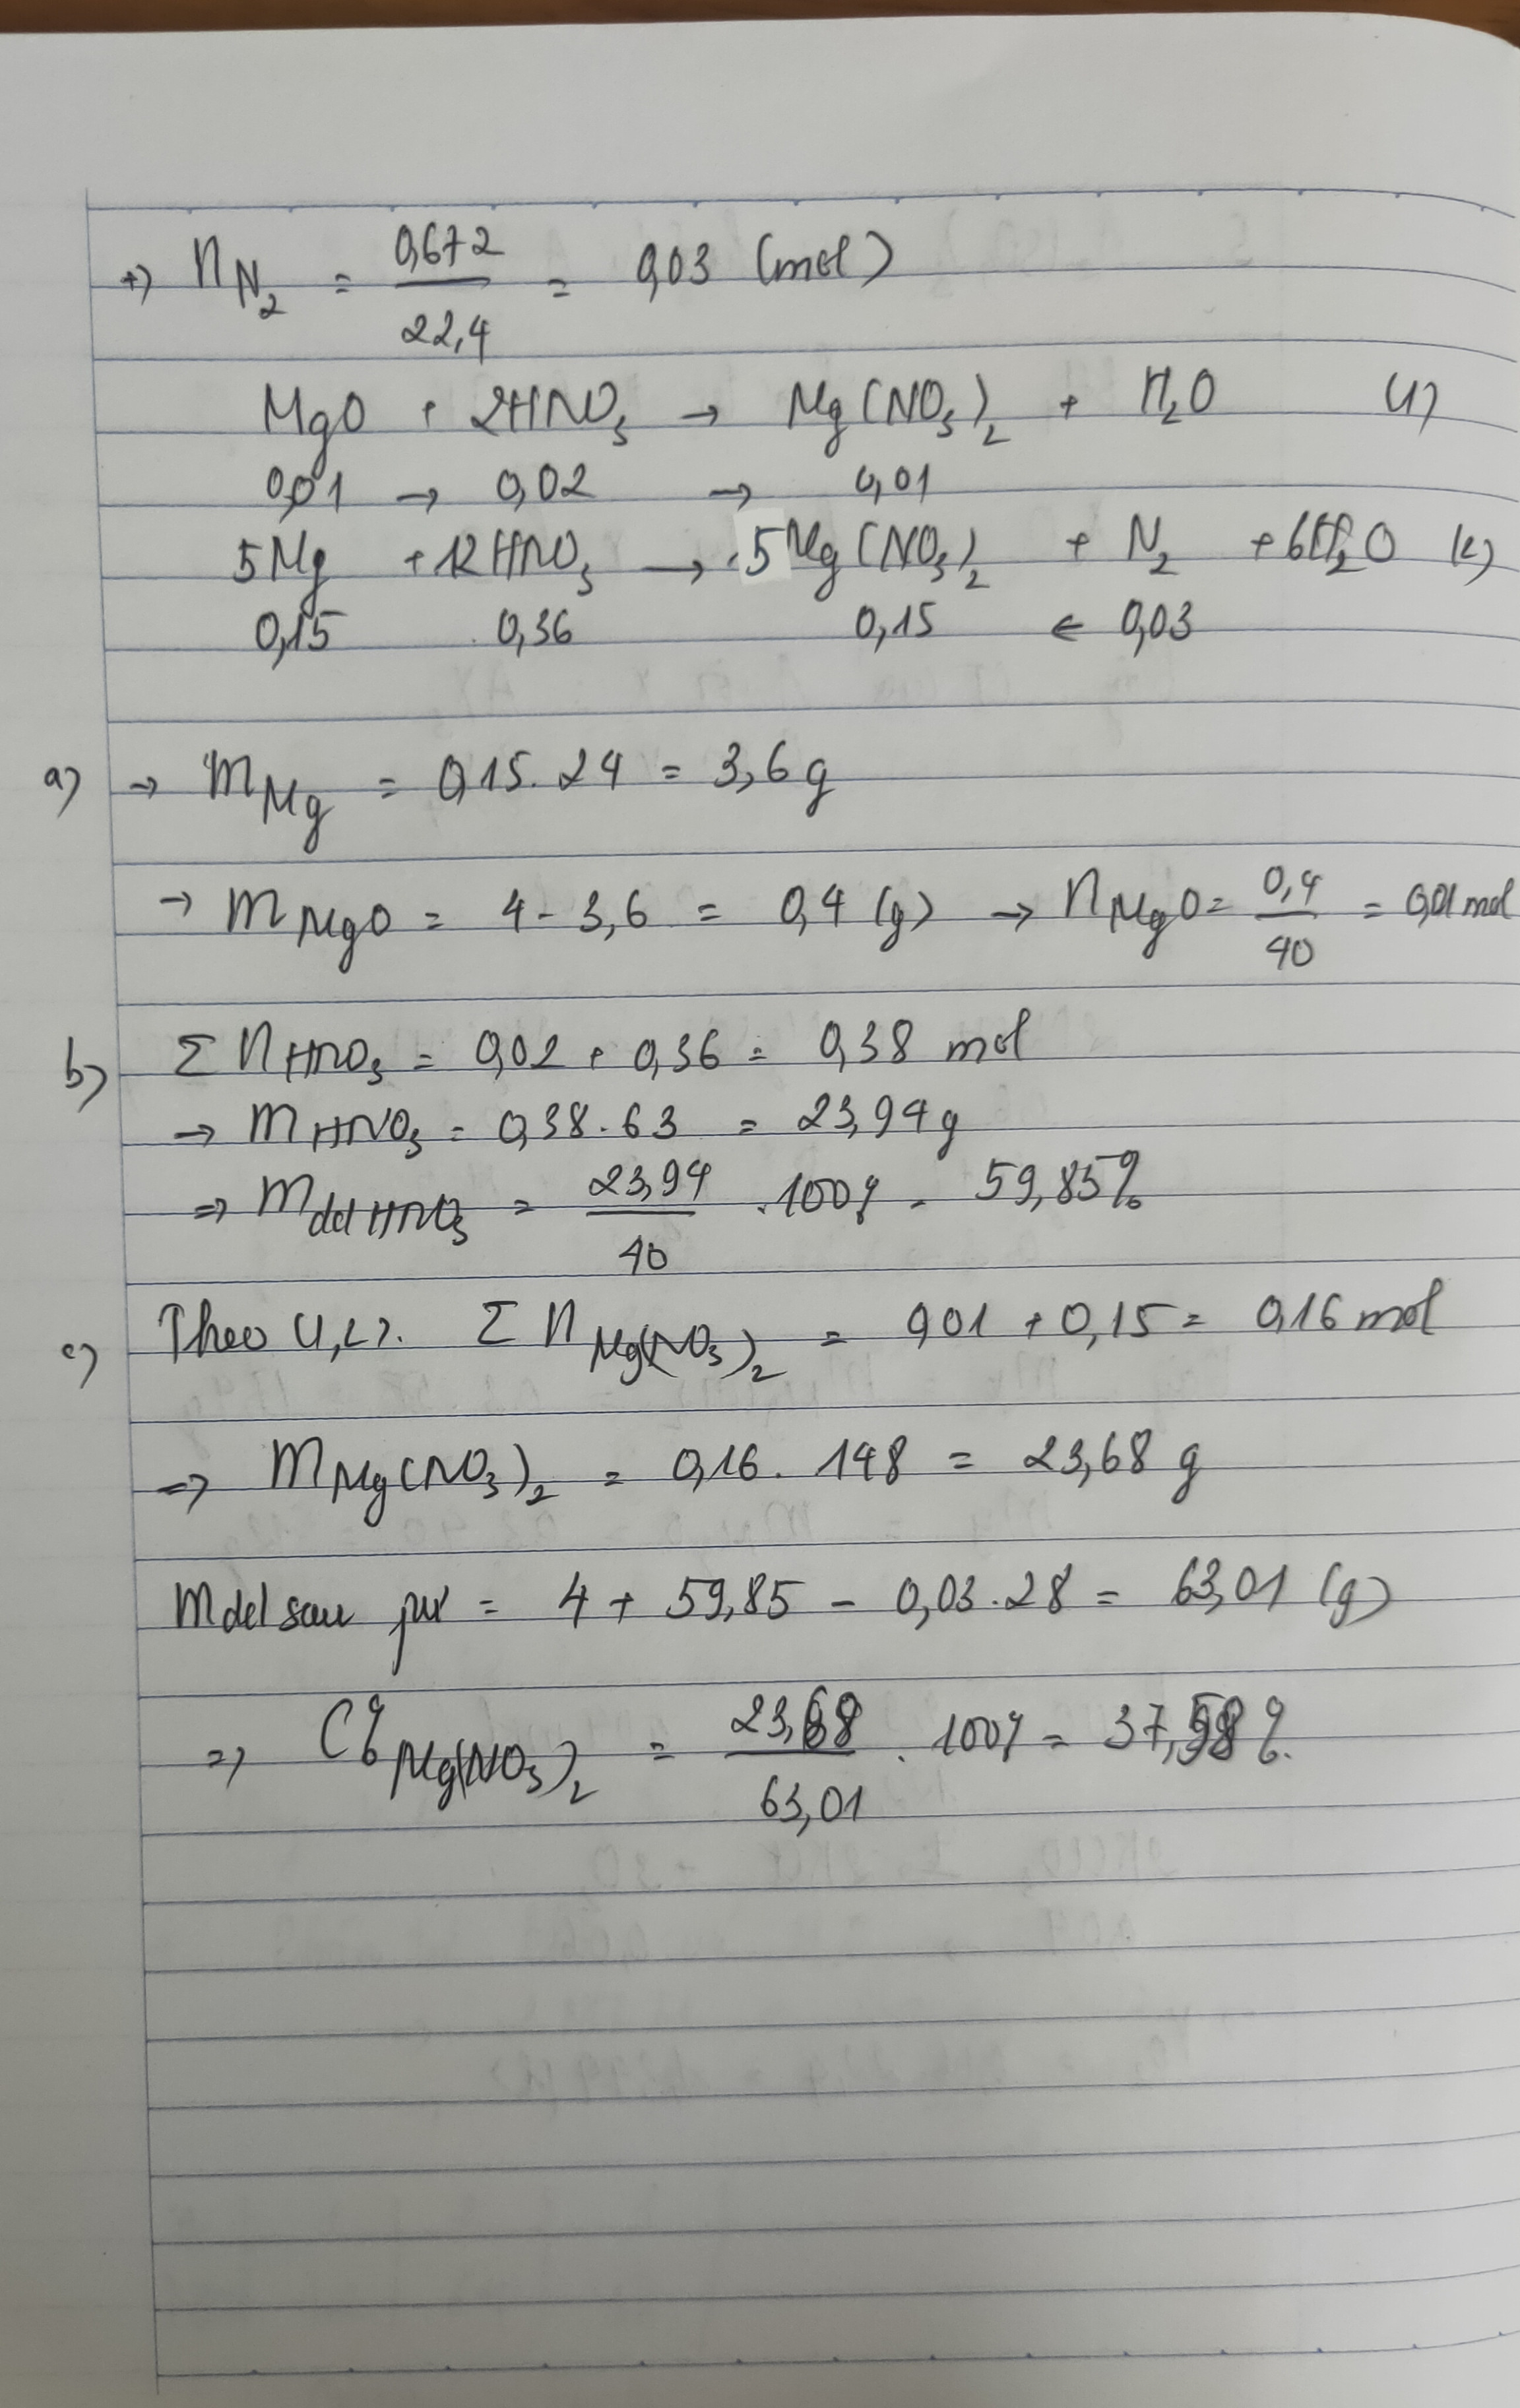 +) nN2 = 0,672 / 22,4 = 0,03 (mol)
MgO + 2HNO3 → Mg(NO3)2 + H2O (1)
0,01 → 0,02 → 0,01
5Mg + 12HNO3 → 5Mg(NO3)2 + N2 + 6H2O (2)
0,15 0,36 0,15 ← 0,03
a) → mMg = 0,15.24 = 3,6g
→ mMgO = 4 - 3,6 = 0,4 (g) → nMgO = 0,4 / 40 = 0,01 mol
b) Σ nHNO3 = 0,02 + 0,36 = 0,38 mol
→ mHNO3 = 0,38.63 = 23,94g
=> mdd HNO3 = 23,94 / 40 .100% = 59,85%
c) Theo (1,2). Σ nMg(NO3)2 = 0,01 + 0,15 = 0,16 mol
=> mMg(NO3)2 = 0,16. 148 = 23,68 g
mdd sau pứ = 4 + 59,85 - 0,03.28 = 63,01 (g)
=> C% Mg(NO3)2 = 23,68 / 63,01 . 100% = 37,58%.